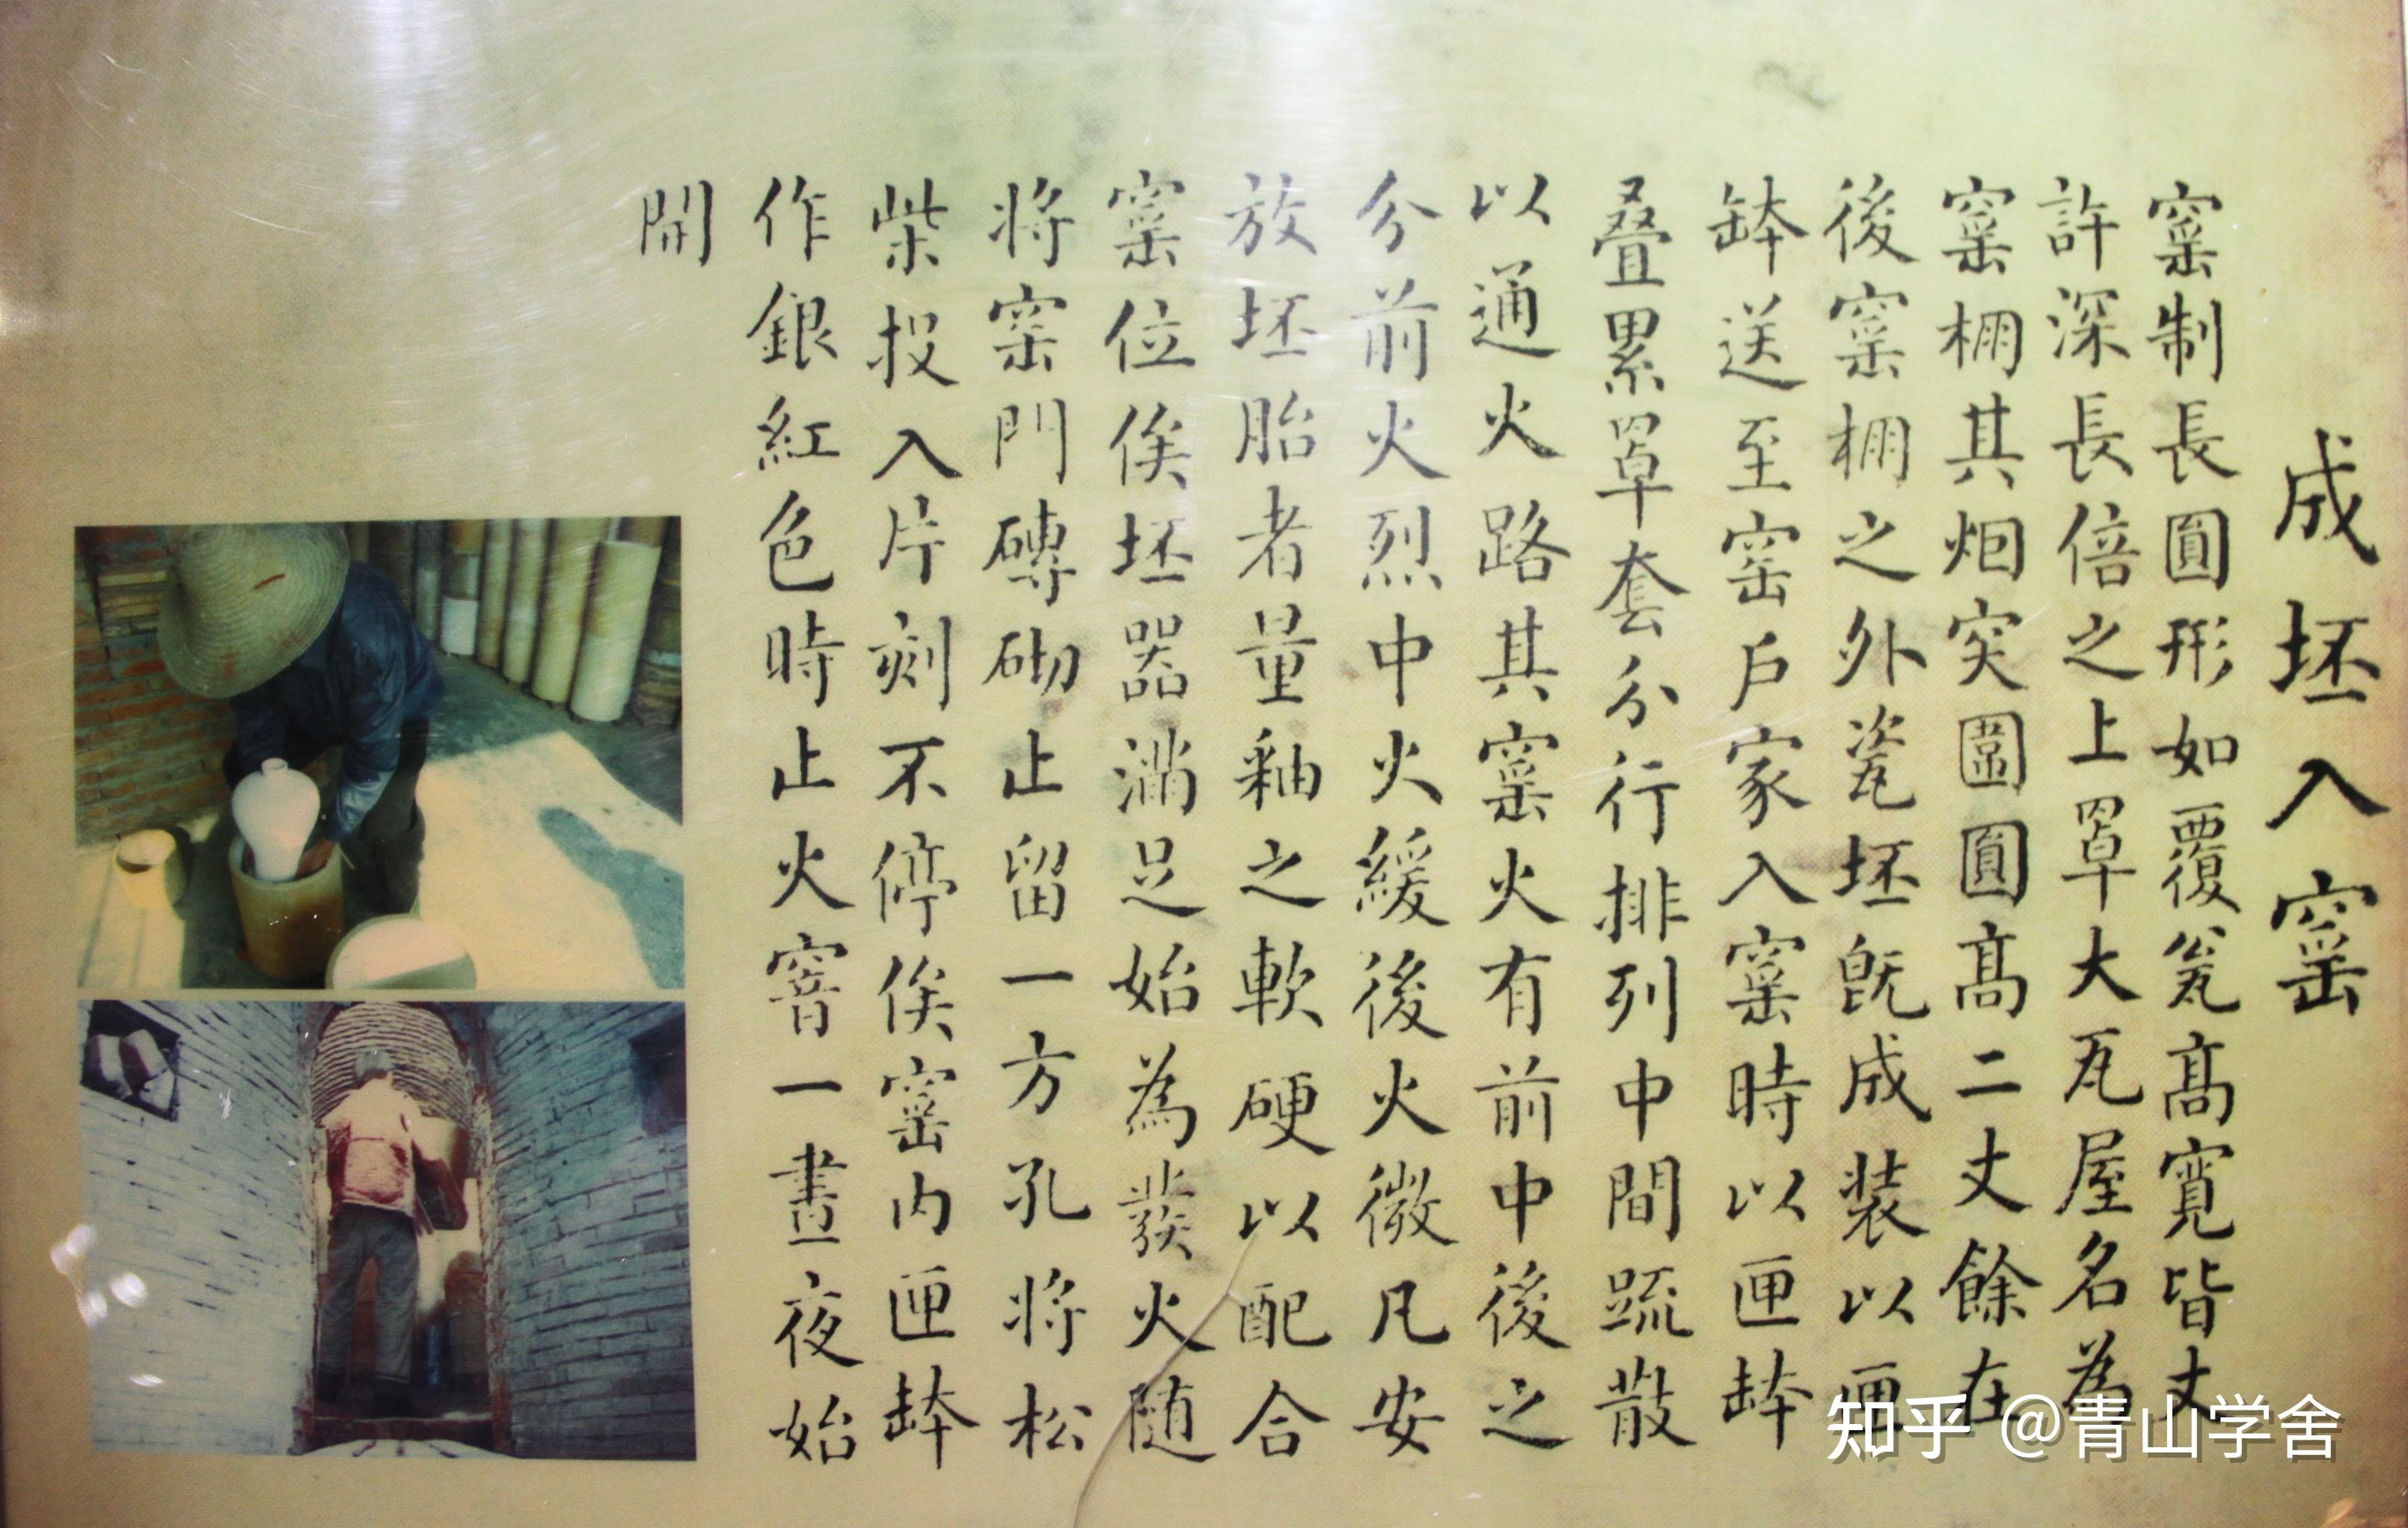 成坯入窑
窑制長圓形如覆瓮髙寬皆丈
許深長倍之上罩大瓦屋名為
窑棚其烟突圍圓髙二丈餘在
後窑棚之外瓷坯既成装以匣
缽送至窑户家入窑時以匣缽
叠累罩套分行排列中間疏散
以通火路其窑火有前中後之
分前火烈中火緩後火微凡安
放坯胎者量釉之軟硬以配合
窑位俟坯器滿足始為發火随
将窑門磚砌止留一方孔将松
柴投入片刻不停俟窑内匣缽
作銀紅色時止火窨一晝夜始
開
知乎 @青山学舍